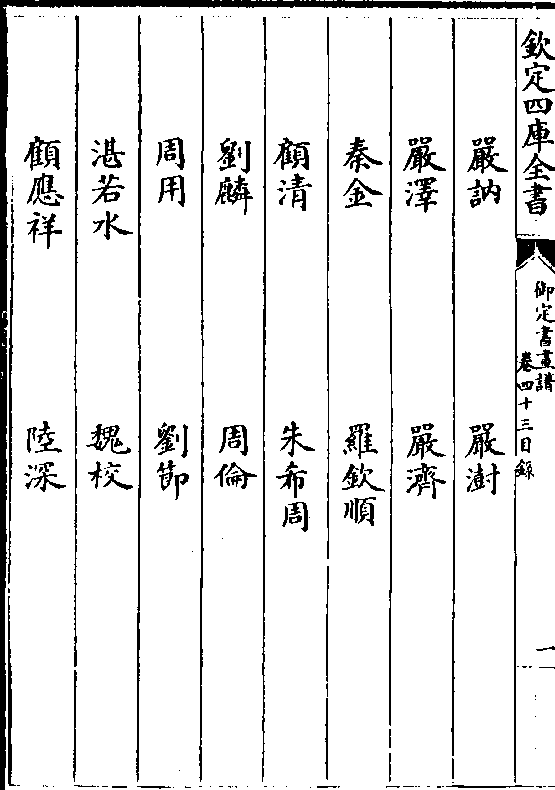 欽定四庫全書
御定書畫譜
卷四十三目錄
一
嚴訥 嚴澍
嚴澤 嚴濟
秦金 羅欽順
顧清 朱希周
劉麟 周倫
周用 劉節
湛若水 魏校
顧應祥 陸深